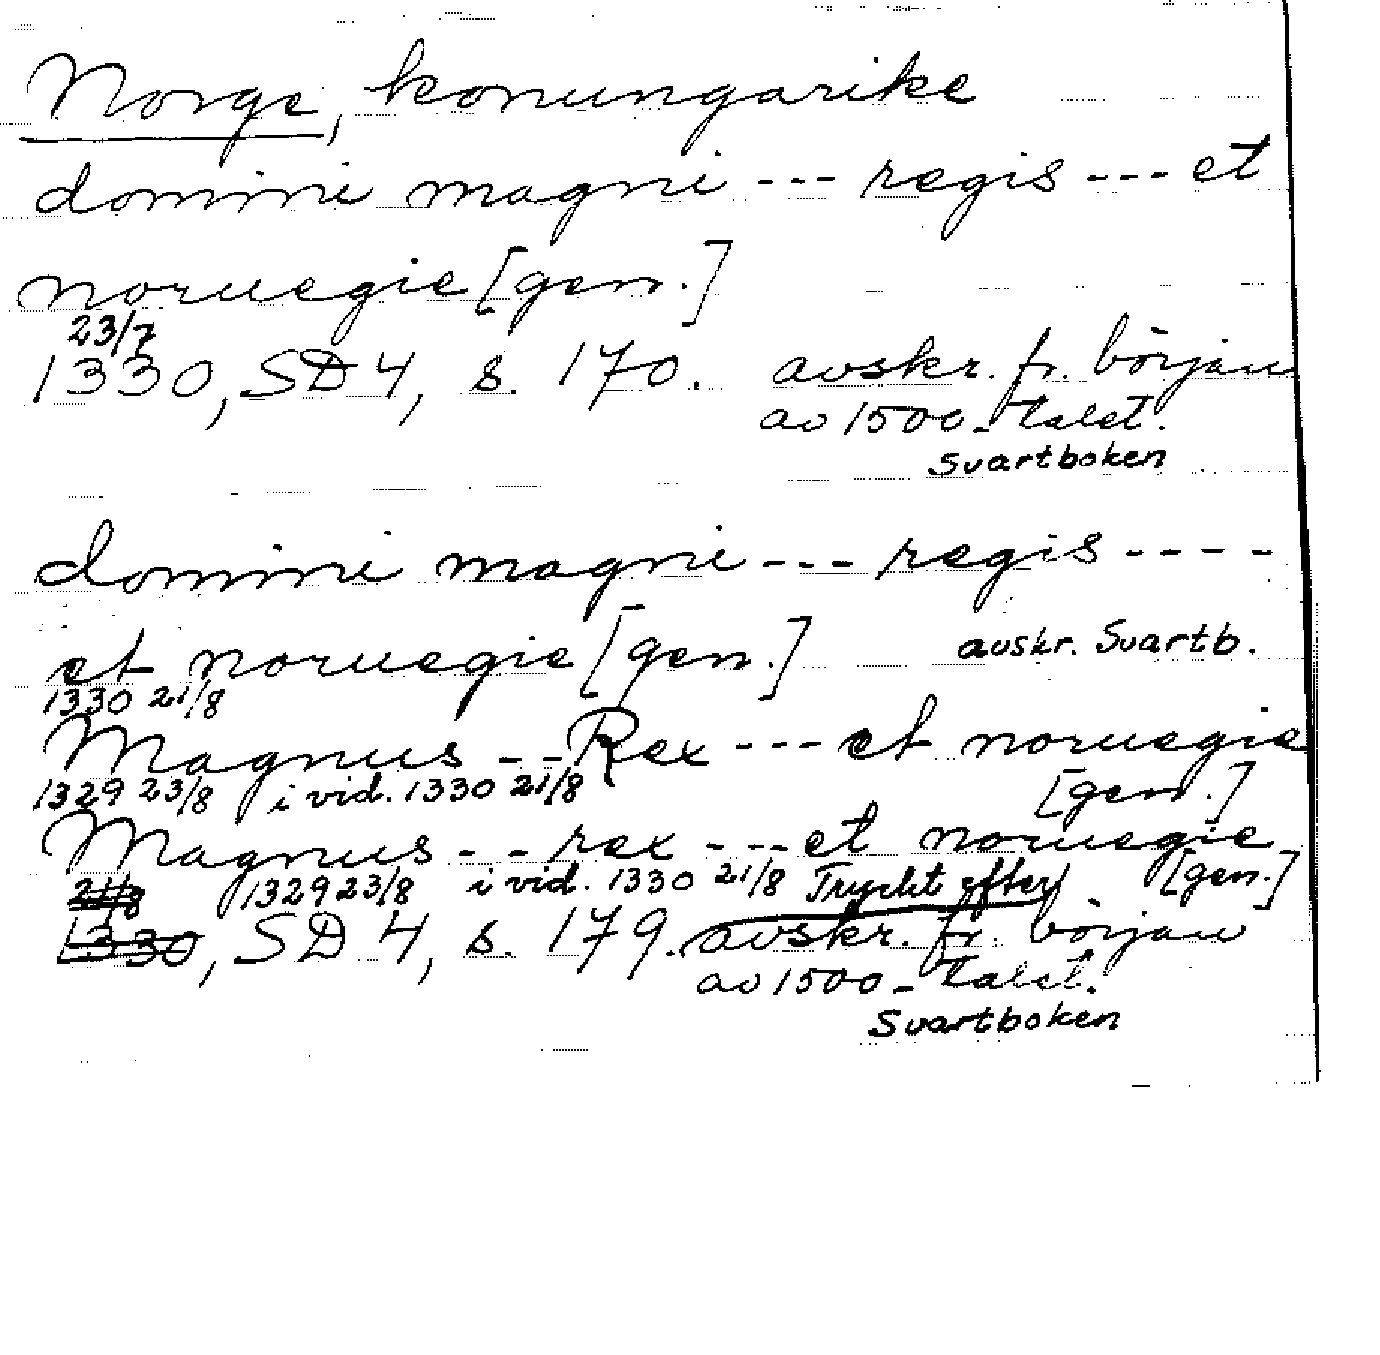 Norge, konungarike
domini magni --- regis --- et
noruegie [gen.]
23/7
1330, SD 4, s. 170. avskr. fr. början
av 1500-talet.
Svartboken
domini magni --- regis ----
et noruegie [gen.] avskr. Svartb.
1330 21/8
Magnus -- Rex --- et noruegie
1329 23/8 i vid. 1330 21/8 [gen.]
Magnus -- rex --- et noruegie
21/8 1329 23/8 i vid. 1330 21/8 Tryckt efter [gen.]
1330, SD 4, s. 179. avskr. fr. början
av 1500-talet.
Svartboken